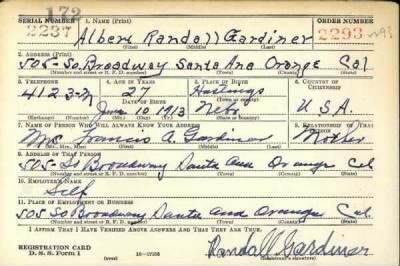 SERIAL NUMBER 1. NAME (Print) ORDER NUMBER
172
2237 Albert Randall Gardiner 2293
(First) (Middle) (Last)
2. ADDRESS (Print)
505-So. Broadway Santa Ana Orange Cal
(Number and street or R. F. D. number) (Town) (County) (State)
3. TELEPHONE 4. AGE IN YEARS 5. PLACE OF BIRTH 6. COUNTRY OF CITIZENSHIP
4123-M 27 Hastings
DATE OF BIRTH (Town or county)
June 10 1913 Nebr U.S.A.
(Exchange) (Number) (Mo.) (Day) (Yr.) (State or country)
7. NAME OF PERSON WHO WILL ALWAYS KNOW YOUR ADDRESS 8. RELATIONSHIP OF THAT PERSON
Mrs Frances A. Gardiner Mother
(Mr., Mrs., Miss) (First) (Middle) (Last)
9. ADDRESS OF THAT PERSON
505-So Broadway Santa Ana Orange Cal
(Number and street or R. F. D. number) (Town) (County) (State)
10. EMPLOYER'S NAME
Self
11. PLACE OF EMPLOYMENT OR BUSINESS
505 So Broadway Santa Ana Orange Cal.
(Number and street or R. F. D. number) (Town) (County) (State)
I AFFIRM THAT I HAVE VERIFIED ABOVE ANSWERS AND THAT THEY ARE TRUE.
REGISTRATION CARD
D. S. S. Form 1 (over) 16-17105 Randall Gardiner
(Registrant's signature)